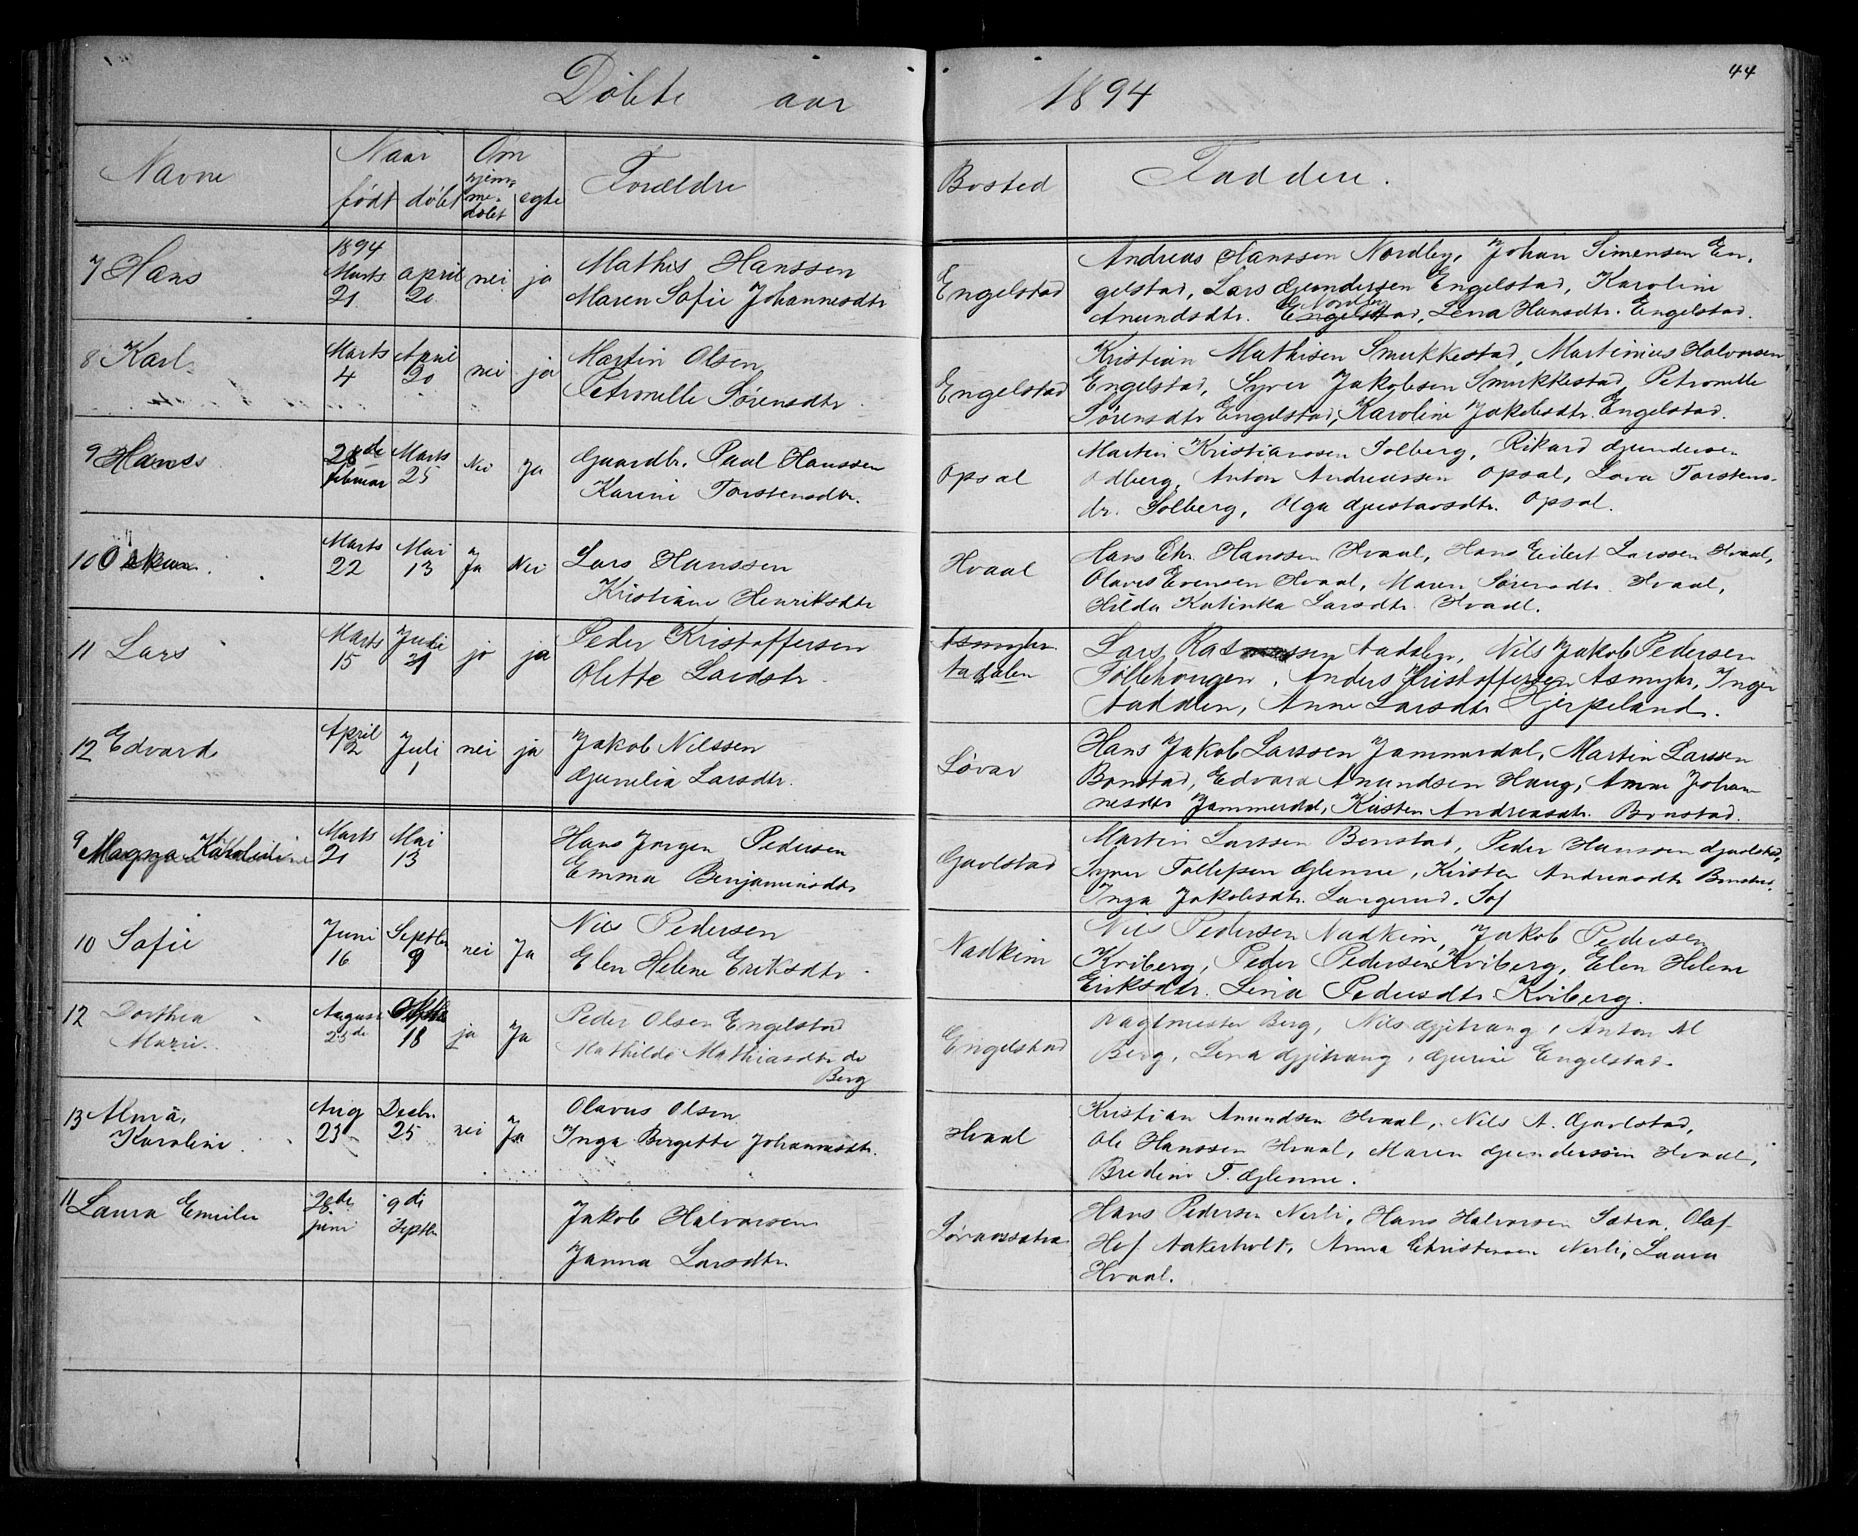 44
Döbte aar 1894
Navne
Naar
født
döbt
Om
hjem-
me-
døbt
egte
Forældre
Bosted
Faddere.
7 Hans
1894
Marts
21
April
20
nei
ja
Mathis Hanssen
Maren Sofie Johannesdtr
Engelstad
Andreas Hanssen Nordby, Johan Simensen En-
gelstad, Lars Gundersen Engelstad, Karoline
Nordby
Amundsdtr. Engelstad, Lena Hansdtr. Engelstad.
8 Karl
Marts
4
April
20
nei
ja
Martin Olsen
Petronelle Sörensdtr
Engelstad
Kristian Mathisen Smukkestad, Martinius Halvorsen
Engelstad, Syver Jakobsen Smukkestad, Petronelle
Sörensdtr Engelstad, Karoline Jakobsdtr. Engelstad.
9 Hans
28de
februar
Marts
25
Nei
Ja
Gaardbr. Paul Hanssen
Karine Torstensdtr.
Opsal
Martin Kristianssen Solberg, Rikard Gundersen
Odberg, Anton Andreassen Opsal, Lova Torstens-
dr. Solberg, Olga Gustavsdtr. Opsal.
10 Oskar
Marts
22
Mai
13
Ja
Nei
Lars Hanssen
Kristiane Henriksdtr
Hvaal
Hans Chr. Hanssen Hvaal, Hans Eilert Larssen Hvaal,
Olaves Evensen Hvaal, Maren Sörensdtr. Hvaal,
Hilda Katinka Larsdtr. Hvaal.
11 Lars
Marts
15
21
jo
ja
Peder Kristoffersen
Olette Larsdtr.
Aadalen
Lars Rasmussen Aadalen, Nils Jakob Pedersen
Töllehaugen, Anders Kristoffersen Asmyhr, Inger
Aadalen, Anne Larsdtr Hjerpeland.
12 Edvard
April
2
Juli
1
nei
ja
Jakob Nilssen
Gunelia Larsdtr.
Lövar
Hans Jakob Larssen Jammerdal, Martin Larssen
Bonstad, Edvard Amundsen Haug, Anne Johan-
nesdtr Jammerdal, Kirsten Andreasdtr. Bonstad.
9 Magna
Marts
21
Mai
13
Hans Jörgen Pedersen
Emma Benjaminsdtr
Gavlstad
Martin Larssen Bonstad, Peder Hanssen Gavlstad,
Syver Tollefsen Glenne, Kirsten Andreasdtr Bonstad,
Inga Jakobsdtr. Langerud. Sof
10 Sofie
Juni
16
Septbr
9
nei
Ja
Nils Pedersen
Elen Helene Eriksdtr
Nadkim
Nils Pedersen Nadkim, Jakob Pedersen
Kviberg, Peder Pedersen Kviberg, Elen Helene
Eriksdtr. Lina Pedersdtr Kviberg.
12 Dorthea
Marie.
August
25de
18
ja
Ja
Peder Olsen Engelstad
Mathilde Mathiasdtr de
Berg
Engelstad
Vagtmester Berg, Nils Gjitrang, Anton M
Berg, Lena Gjitrang, Gurine Engelstad.
13 Alma
Karoline
Aug
23
Decbr.
25
nei
Ja
Olavus Olsen
Inga Bergette Johannesdtr.
Hvaal
Kristian Amundsen Hvaal, Nils A. Gavlstad,
Ole Hanssen Hvaal, Maren Gunderssen Hvaal,
Bredine T. Glenne.
11 Laura Emilie
28de
juni
9di
Septbr
Jakob Halvorsen
Janna Larsdtr.
Hans Pedersen Nerli, Hans Halvorsen Sætra, Olaf
Hof Aakerholt, Anna Christensen Nerli, Laura
Hvaal.